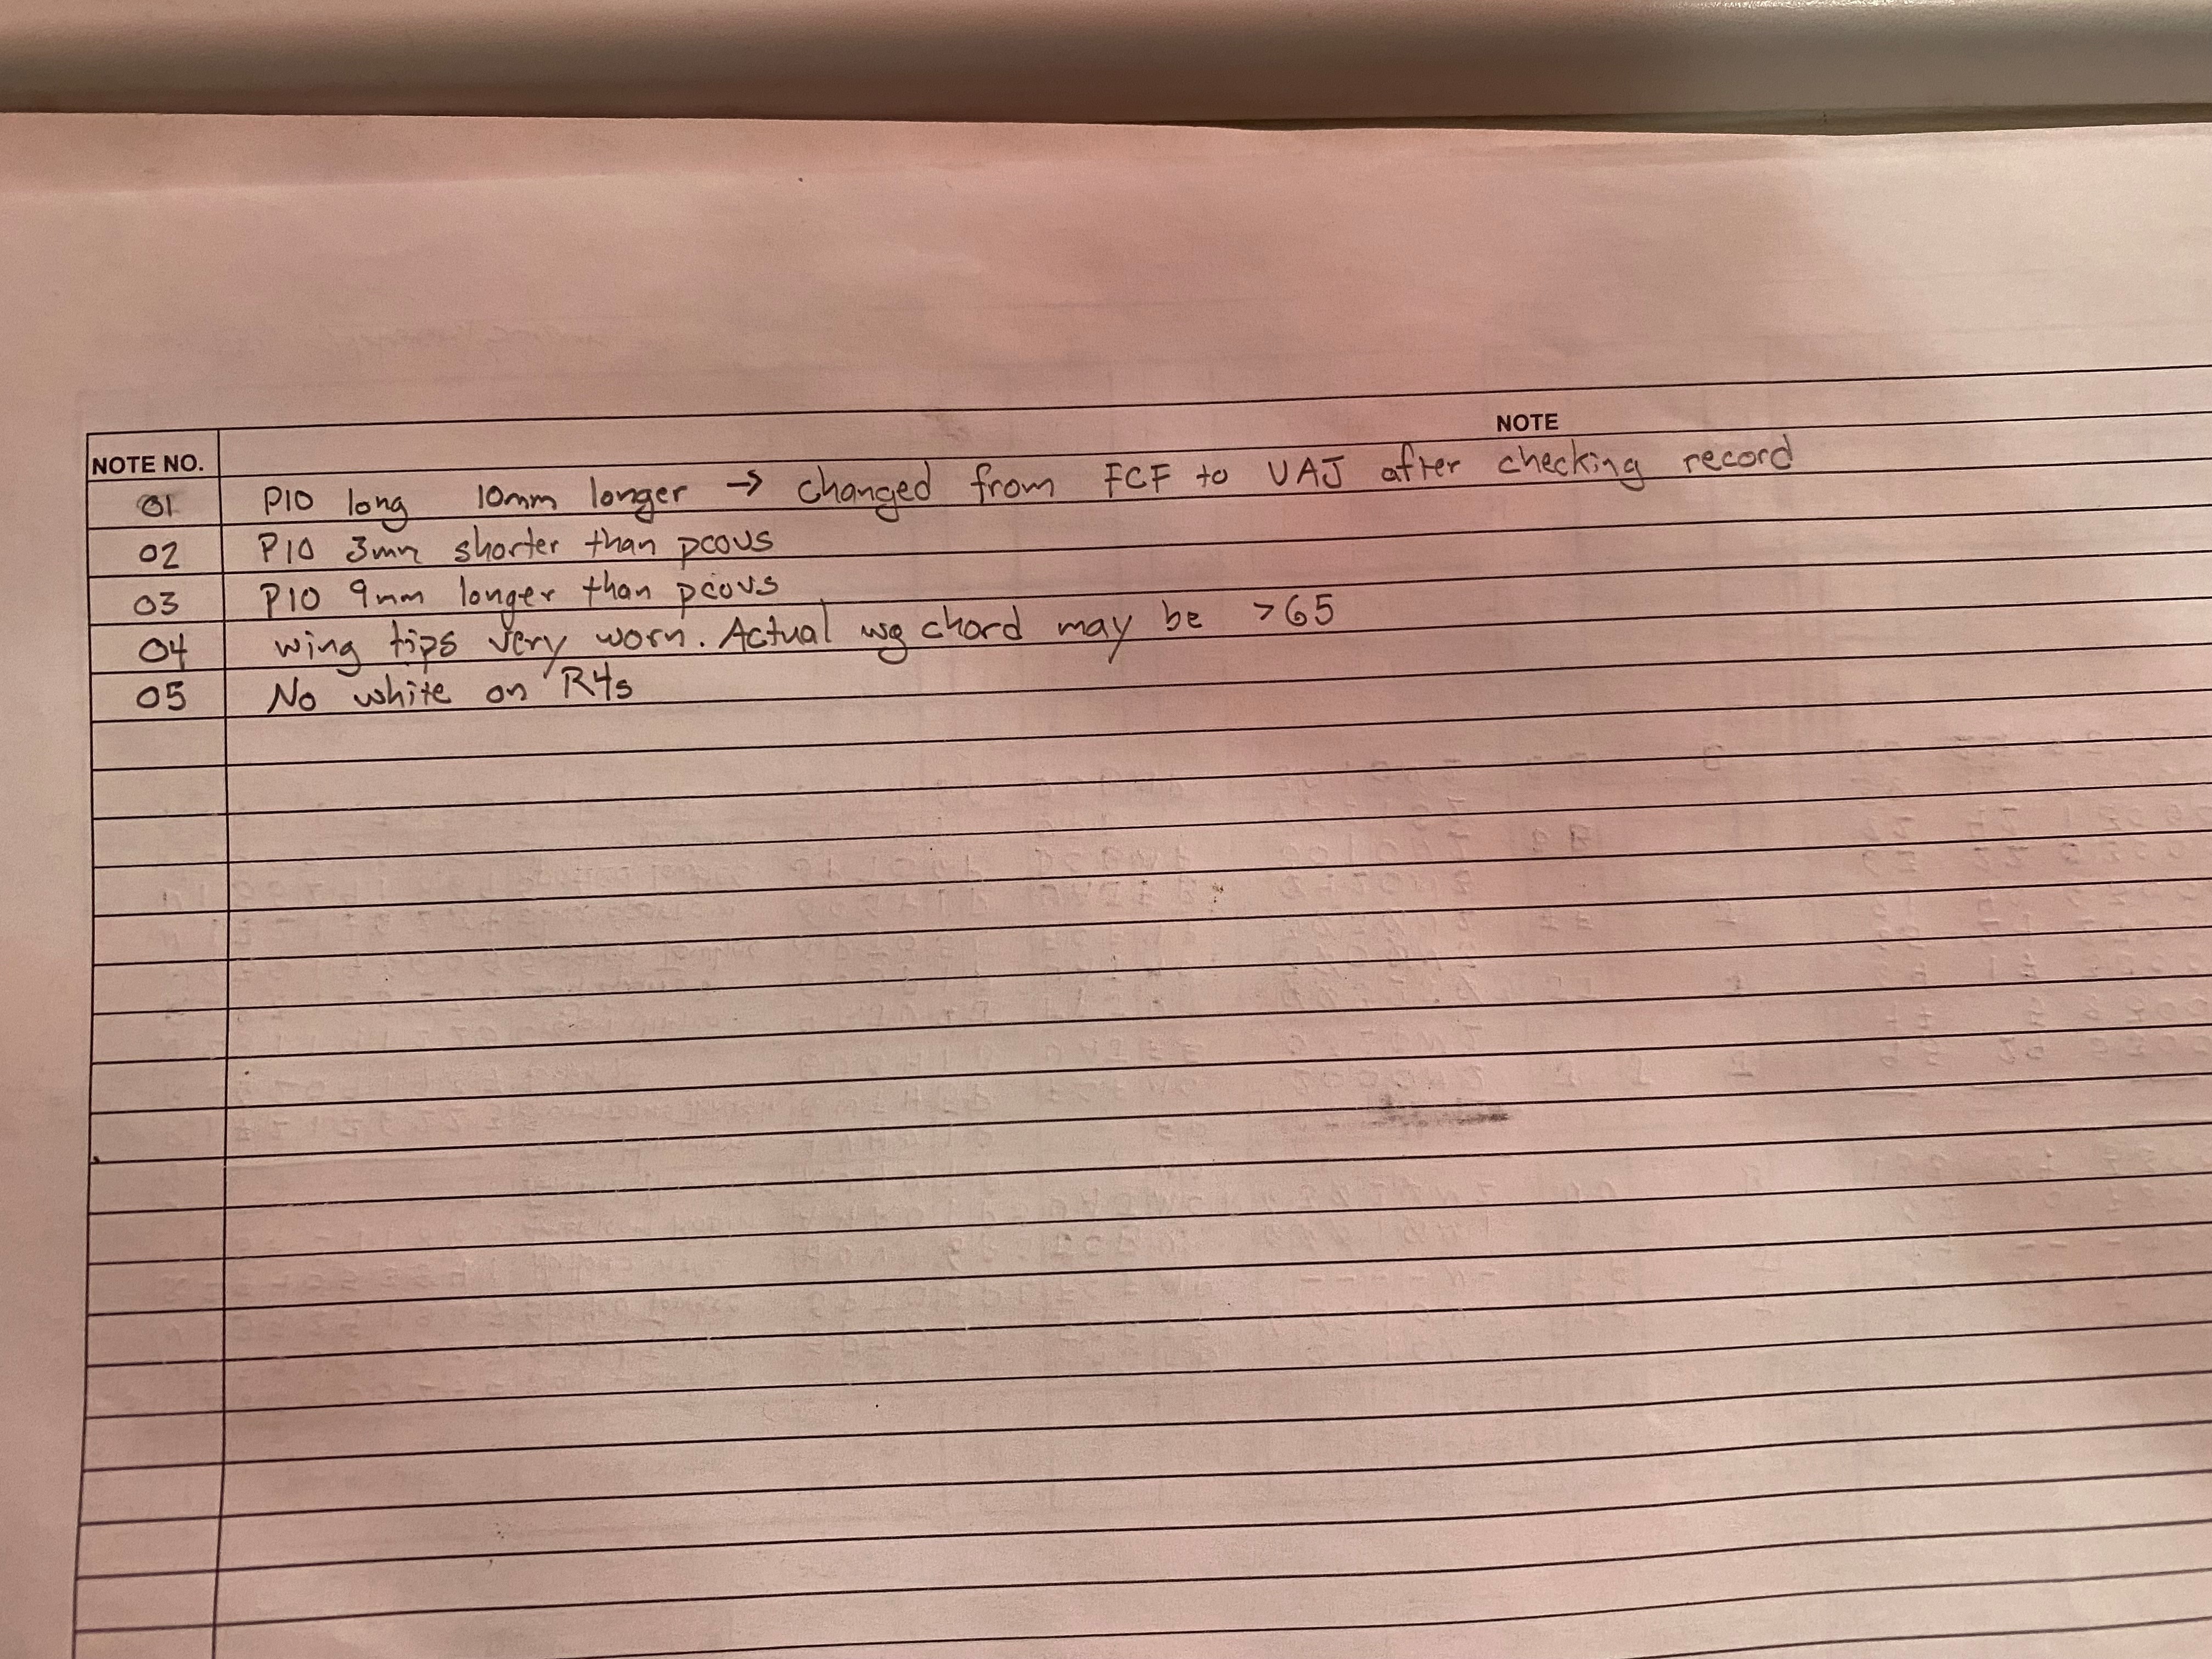 NOTE NO. NOTE
01 P10 long 10mm longer → changed from FCF to UAJ after checking record
02 P10 3mm shorter than pcovs
03 P10 9mm longer than pcovs
04 wing tips very worn. Actual wg chord may be >65
05 No white on R4s